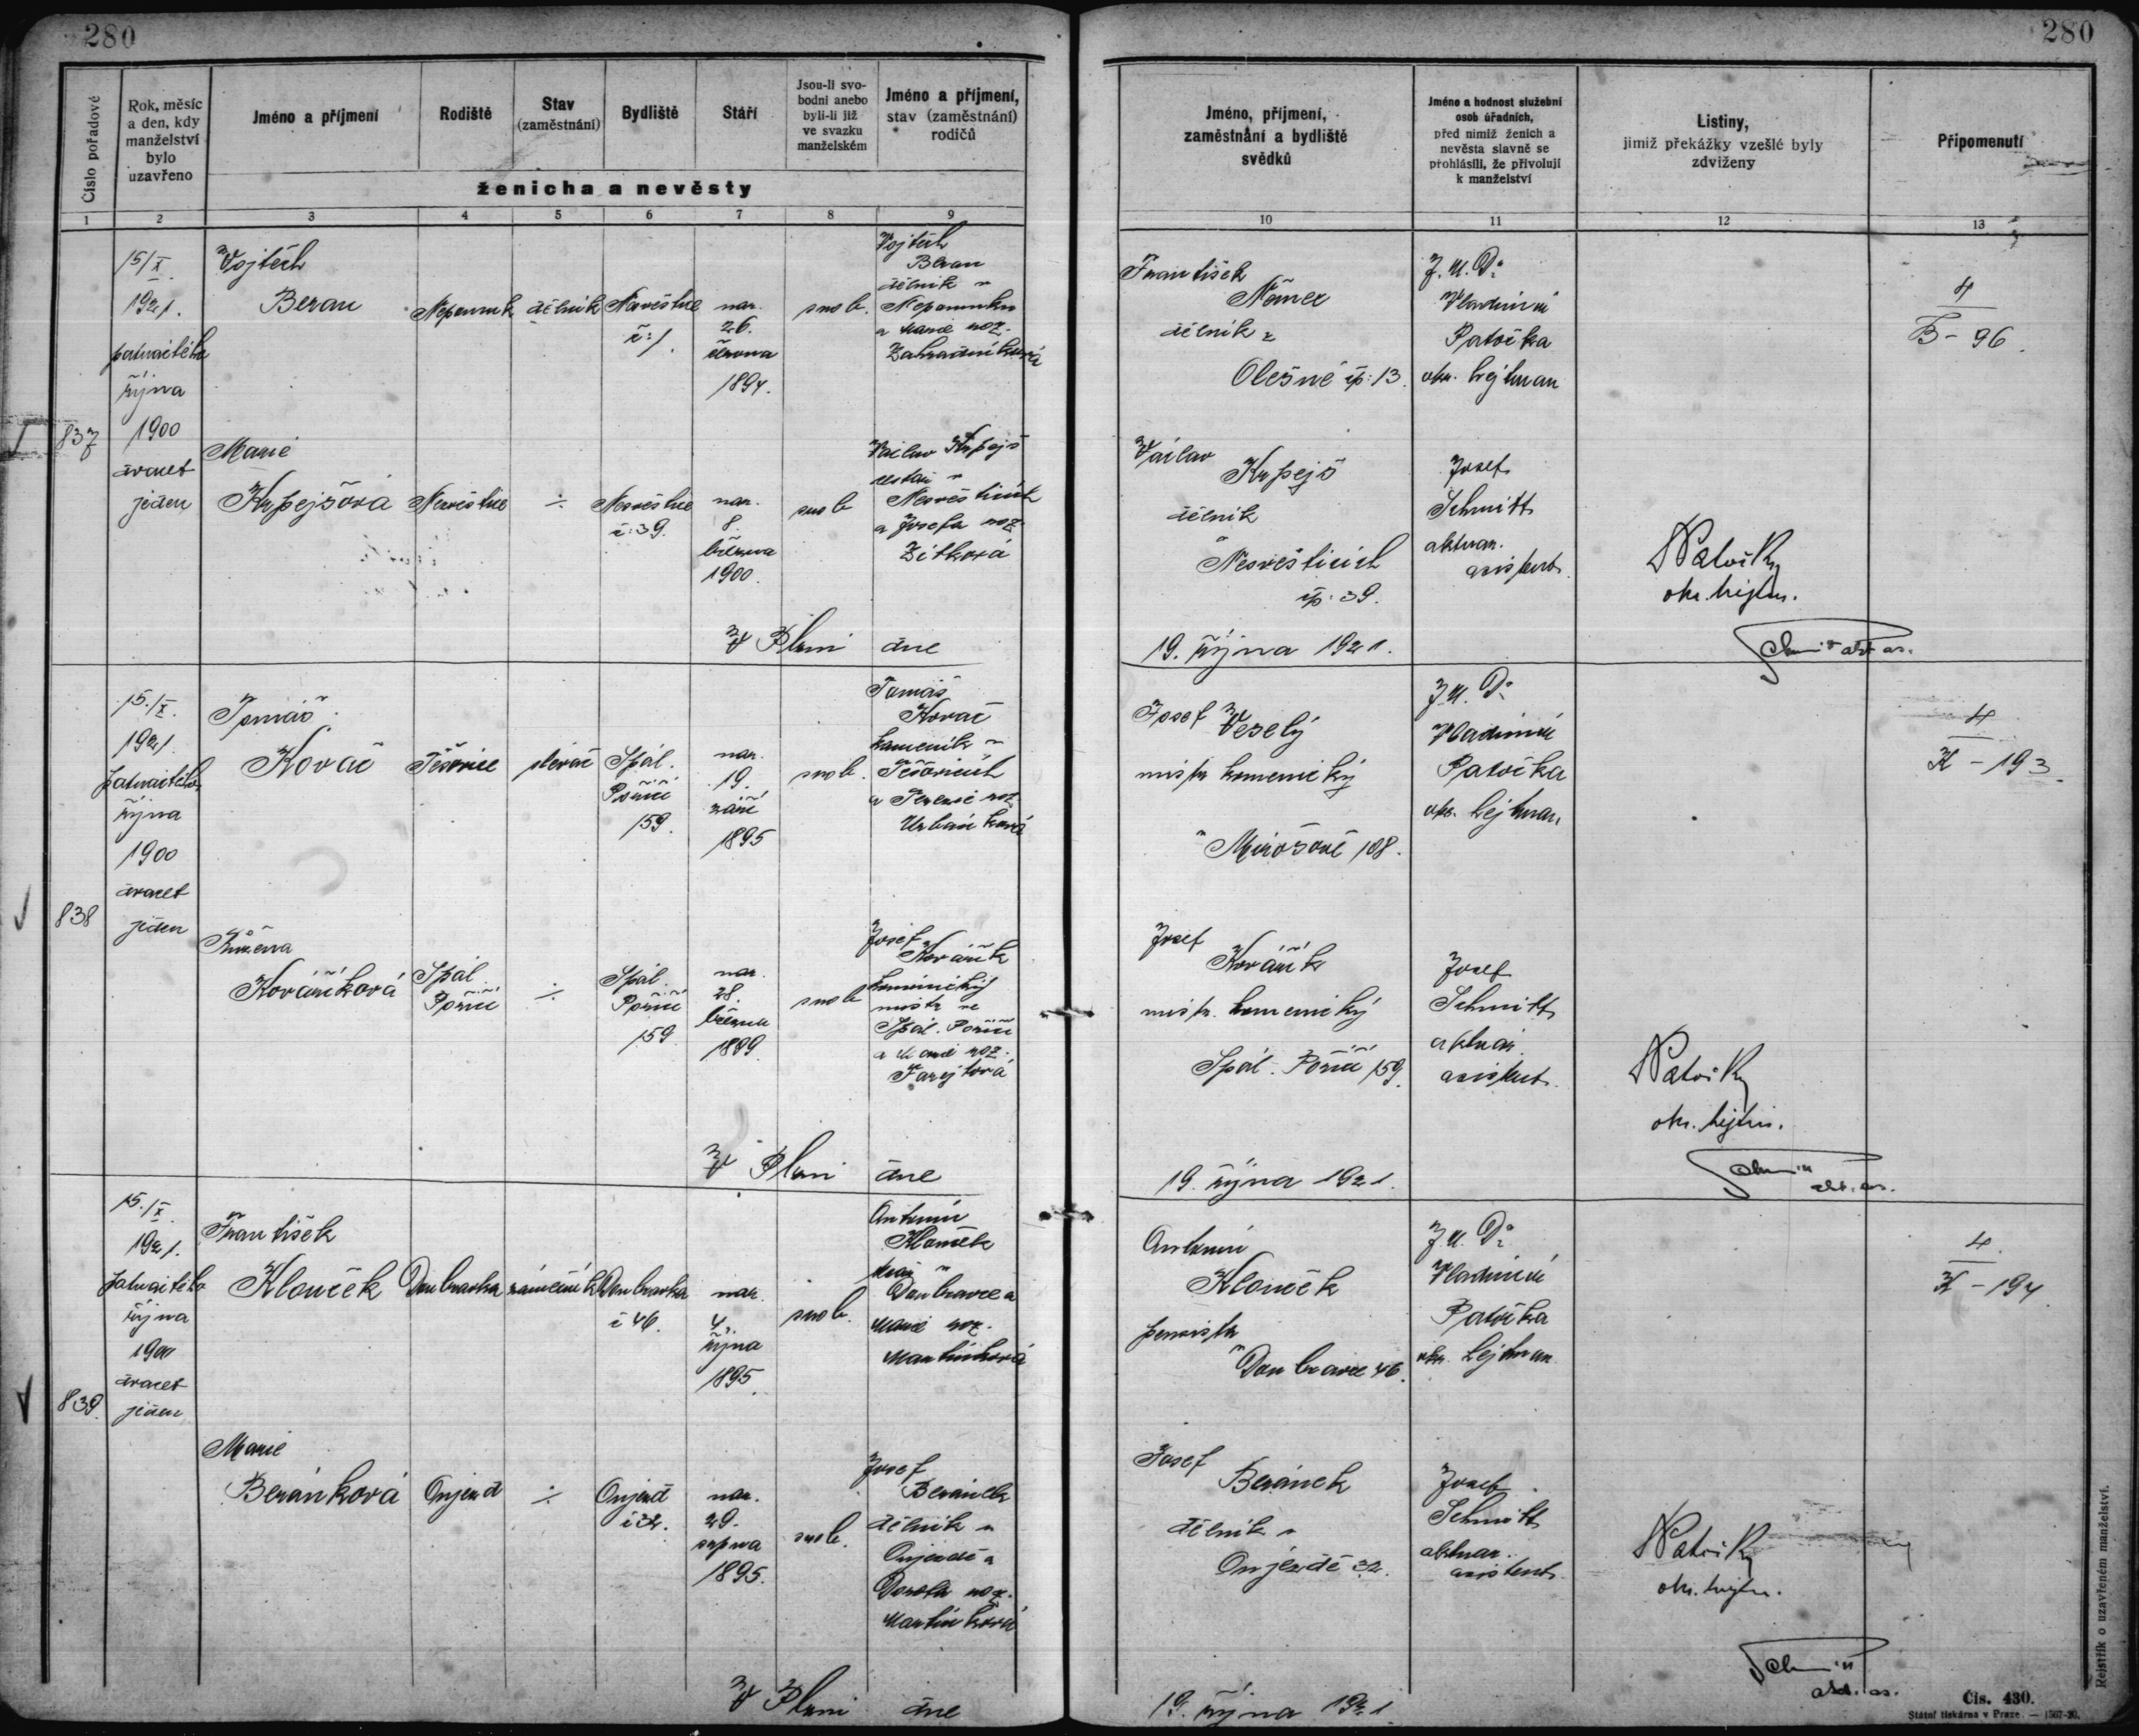 280
280
Číslo pořadové
Rok, měsíc
a den, kdy
manželství
bylo
uzavřeno
Jméno a příjmení
Rodiště
Stav
(zaměstnání)
Bydliště
Stáří
Jsou-li svo-
bodni anebo
byli-li již
ve svazku
manželském
Jméno a příjmení,
stav (zaměstnání)
rodičů
ženicha a nevěsty
Jméno, příjmení,
zaměstnání a bydliště
svědků
Jméno a hodnost služební
osob úřadních,
před nimiž ženich a
nevěsta slavně se
prohlásili, že přivolují
k manželství
Listiny,
jimiž překážky vzešlé byly
zdviženy
Připomenutí
1 2 3 4 5 6 7 8 9 10 11 12 13
837
15/X.
1921.
patnáctého
října
1900
dvacet
jeden
Vojtěch
Beran
Nepomuk
dělník
Nesvěstice
č: 1.
nar.
26.
června
1894.
svob.
Vojtěch
Beran
dělník v
Nepomuku
a Marie roz.
Zahradníková
František
Němec
dělník v
Olešné čp: 13.
J. U. Dr
Vladimír
Patočka
okr. hejtman
4
B - 96.
Marie
Krpejšová
Nesvěstice
÷
Nesvěstice
č: 39.
nar.
8.
března
1900.
svob
Václav Krpejš
v
Nesvěsticích
a Josefa roz.
Zítková
Václav
Krpejš
dělník
v Nesvěsticích
čp: 39.
Josef
Schmitt
aktuar.
asistent.
Patočka
okr. hejtm.
Schmitt akt. as.
V Plzni dne
19. října 1921.
838
15./X.
1921.
patnáctého
října
1900
dvacet
jeden
Tomáš
Kovač
Těšovice
slevač
Spál.
Poříčí
159.
nar.
19.
září
1895
svob.
Tomáš
Kovač
kameník v
Těšovicích
a Terezie roz.
Urbánková
Josef Veselý
mistr kamenický
v Mirošově 108.
J. U. Dr
Vladimír
Patočka
okr. hejtman
4
K - 193.
Růžena
Kováříková
Spál.
Poříčí
÷
Spál.
Poříčí
159
nar.
28.
března
1899.
svob
Josef
Kovářík
kamenický
mistr ve
Spál. Poříčí
a Marie roz.
Josef
Kovářík
mistr. kamenický
Spál. Poříčí 159.
Josef
Schmitt
aktuár.
asistent.
Patočka
okr. hejtm.
Schmitt
akt. as.
V Plzni dne
19. října 1921.
839.
15./X.
1921.
patnáctého
října
1900
dvacet
jeden
František
Klouček
Doubravka
zámečník
Doubravka
č 46.
nar.
4.
října
1895.
svob.
Antonín
Klouček
v
Doubravce a
Marie roz.
Martínková
Antonín
Klouček
pensista
v Doubravce 46.
J. U. Dr
Vladimír
Patočka
okr. hejtman
4.
K - 194
Marie
Beránková
Oujezd
÷
Oujezd
č 32.
nar.
29.
srpna
1895.
svob.
Josef
Beránek
dělník v
Oujezdě a
Dorota roz.
Martínková
Josef
Beránek
dělník v
Oujezdě 32.
Josef
Schmitt
aktuar.
asistent.
Patočka
okr. hejtm.
Schmitt
akt. as.
V Plzni dne
19. října 1921.
Rejstřík o uzavřeném manželství.
Čís. 430.
Státní tiskárna v Praze. — 1567-20.